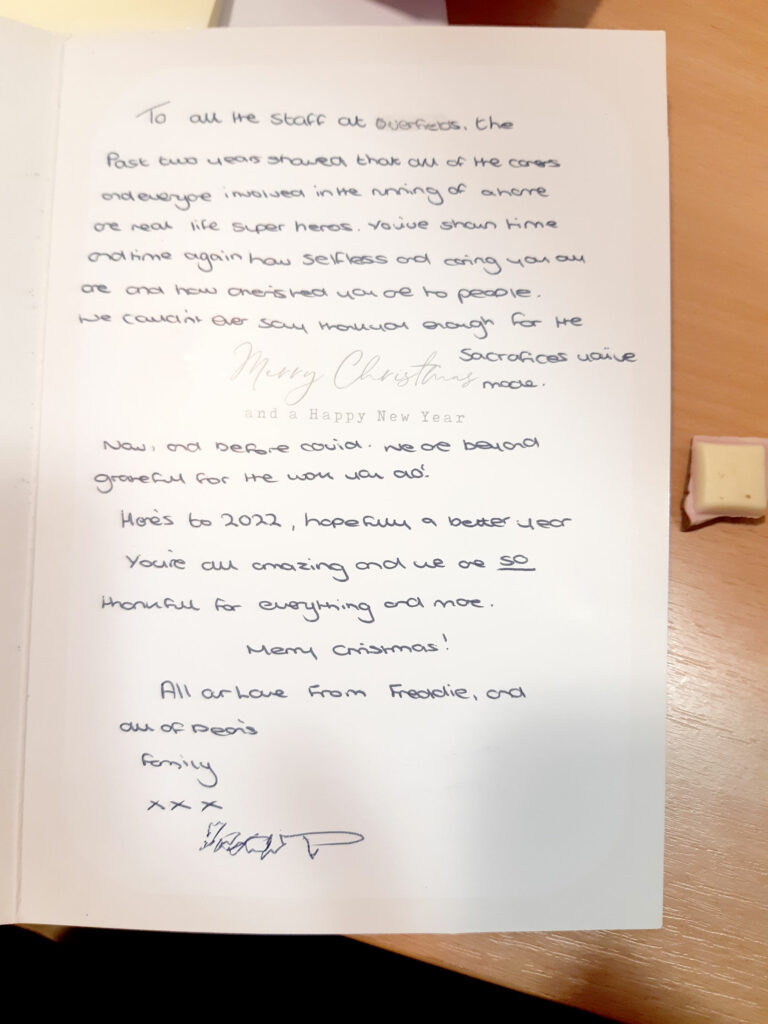 To all the staff at Overfields. the
Past two years showed that all of the carers
and everyone involved in the running of a home
are real life super heros. You've shown time
and time again how selfless and caring you all
are and how cherished you are to people.
We couldn't ever say thankyou enough for the
sacrafices you've
Merry Christmas made.
and a Happy New Year
Now, and before covid. We are beyond
grateful for the work you do!
Here's to 2022, hopefully a better year
You're all amazing and we are so
thankful for everything and more.
Merry Christmas!
All our Love From Freddie, and
all of
Family
xxx